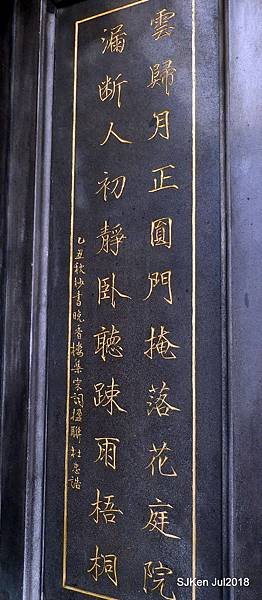 雲歸月正圓門掩落花庭院
漏断人初靜卧聽踈雨梧桐
乙丑秋抄書晚香樓集宋詞楹聯杜忠誥
SJKen Jul2018